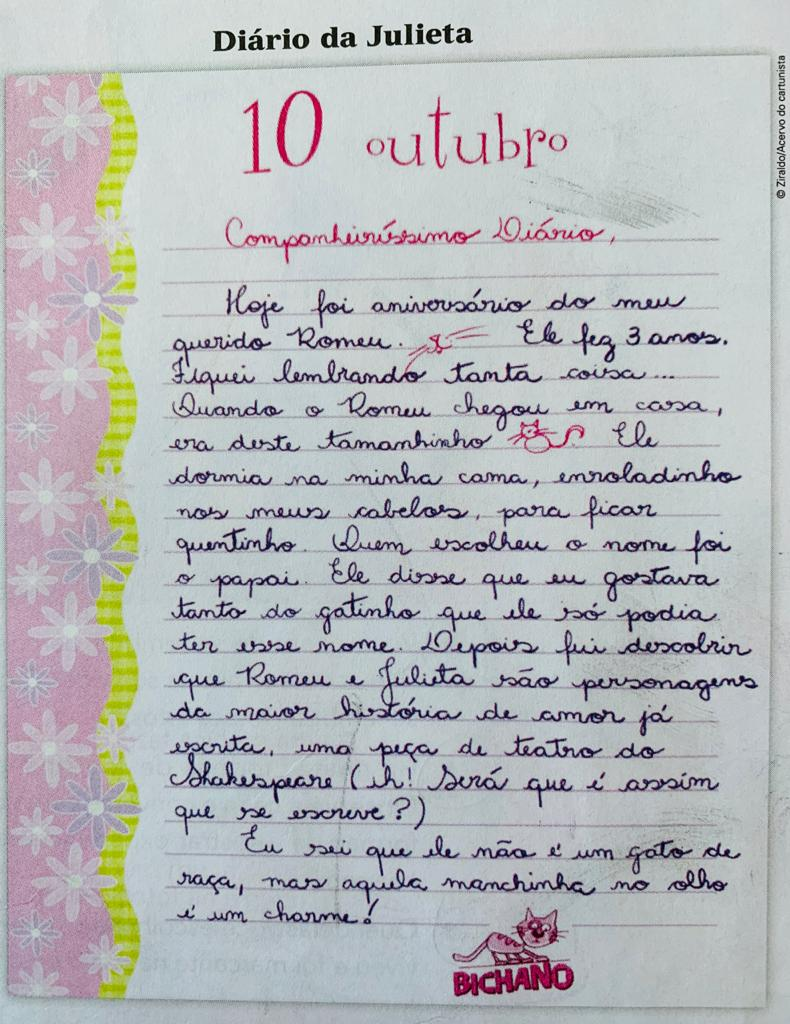 Diário da Julieta
© Ziraldo/Acervo do cartunista
10 outubro
Companheiríssimo Diário,
Hoje foi aniversário do meu
querido Romeu. Ele fez 3 anos.
Fiquei lembrando tanta coisa...
Quando o Romeu chegou em casa,
era deste tamanhinho Ele
dormia na minha cama, enroladinho
nos meus cabelos, para ficar
quentinho. Quem escolheu o nome foi
o papai. Ele disse que eu gostava
tanto do gatinho que ele só podia
ter esse nome. Depois fui descobrir
que Romeu e Julieta são personagens
da maior história de amor já
escrita, uma peça de teatro do
Shakespeare (ih! Será que é assim
que se escreve?)
Eu sei que ele não é um gato de
raça, mas aquela manchinha no olho
é um charme!
BICHANO